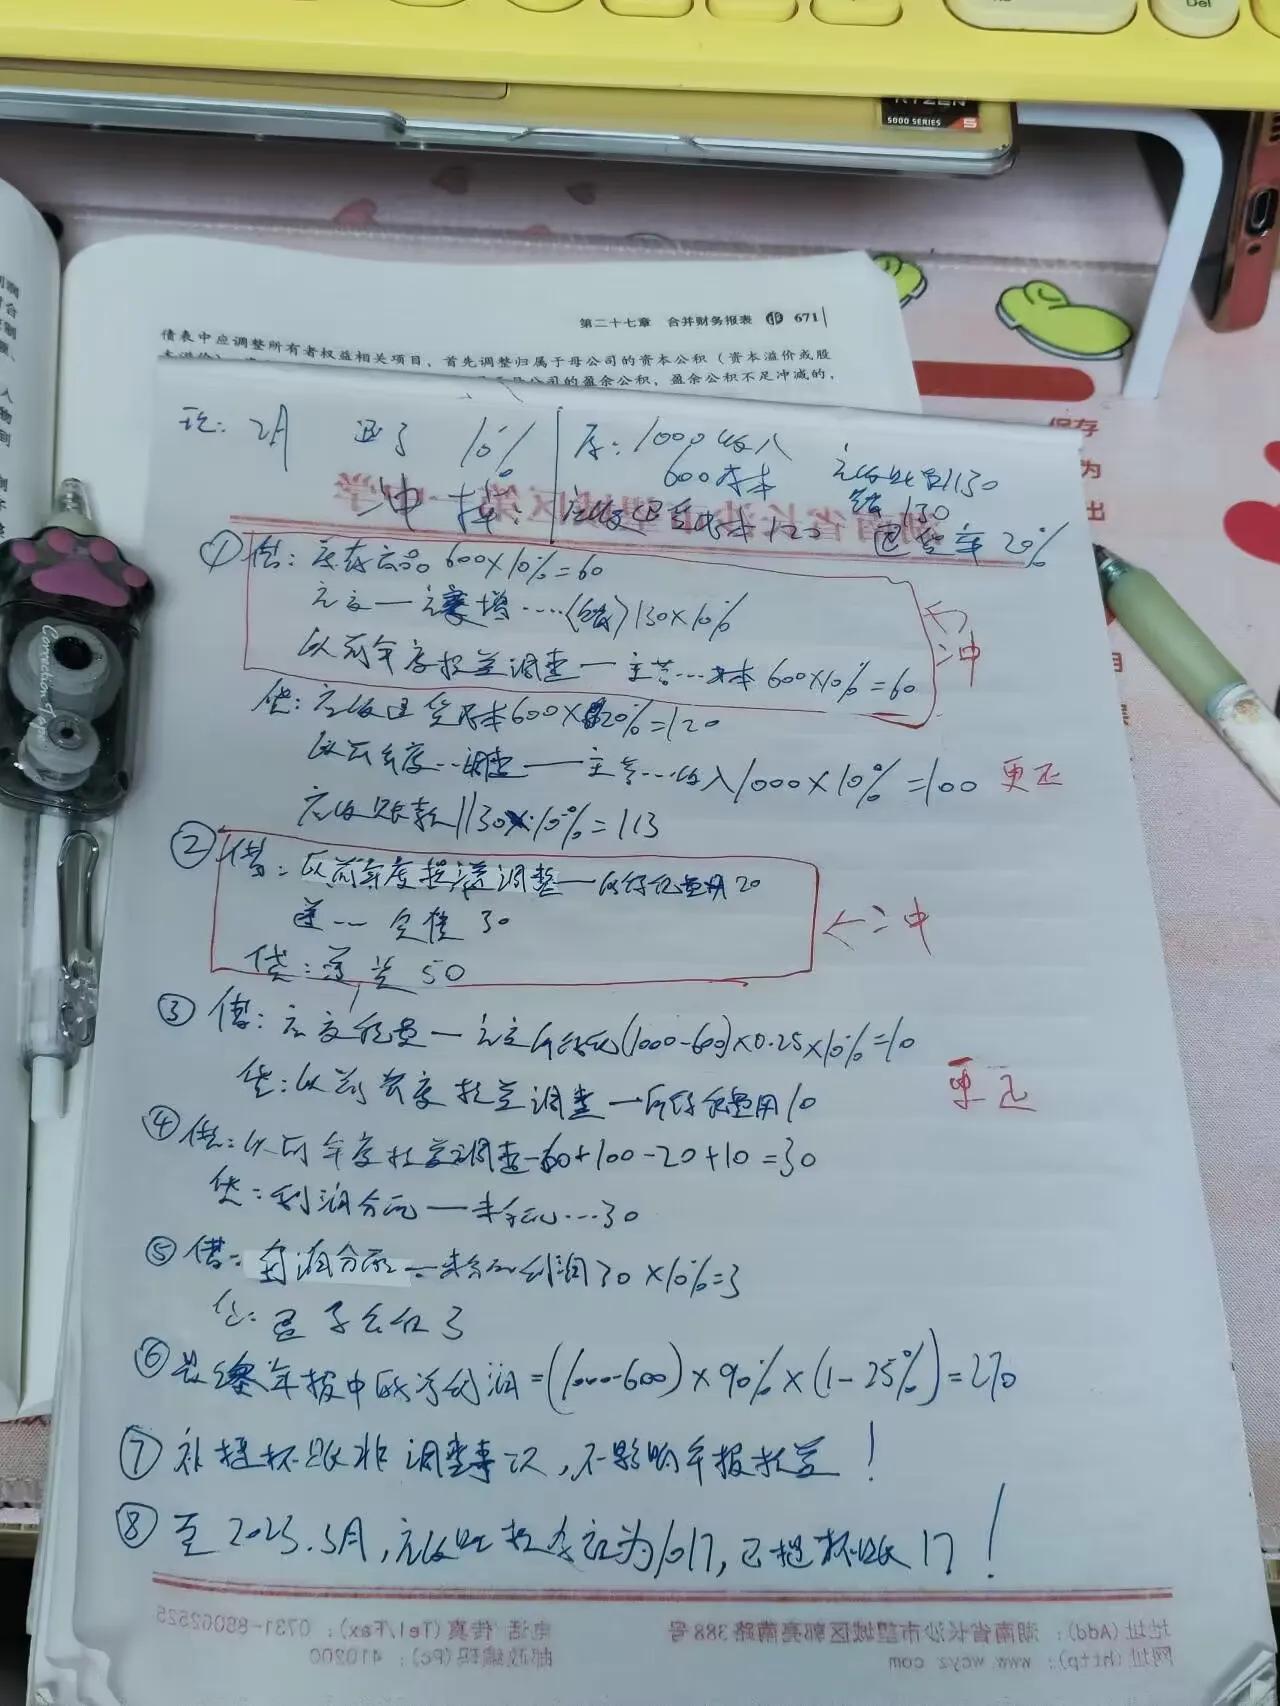 Del
RYZEN
5000 SERIES 5
第二十七章 合并财务报表 671
债表中应调整所有者权益相关项目，首先调整归属于母公司的资本公积（资本溢价或股
公司的盈余公积，盈余公积不足冲减的，
保存
为
出
Correction Tape
2月 退了 10% 原：1000收入
600成本 应收账款1130
税130
冲掉： 应收退货成本120 退货率20%
① 借：库存商品600×10%=60
应交—应交增……(销)130×10%
以前年度损益调整—主营…成本 600×10%=60
冲
贷：应收退货成本600×20%=120
以前年度…调整—主营…收入1000×10%=100 更正
应收账款1130×10%=113
② 借：以前年度损益调整—所得税费用20
递…负债 30
贷：递资 50
←冲
③ 借：应交税费—应交所得税(1000-600)×0.25×10%=10
贷：以前年度损益调整—所得税费用10
更正
④ 借：以前年度损益调整-60+100-20+10=30
贷：利润分配—未分配…30
⑤ 借：利润分配—未分配利润30×10%=3
贷：盈余公积3
⑥ 最终年报中的净利润=(1000-600)×90%×(1-25%)=270
⑦ 补提坏账非调整事项，不影响年报损益！
⑧ 至2023.3月，应收账款余额为1017，已提坏账17！
地址(Add)：湖南省长沙市望城区郭亮南路388号 电话 传真(Tel/Fax)：0731-88062525
网址(http)：www.wcyz.com 邮政编码(Pc)：410200